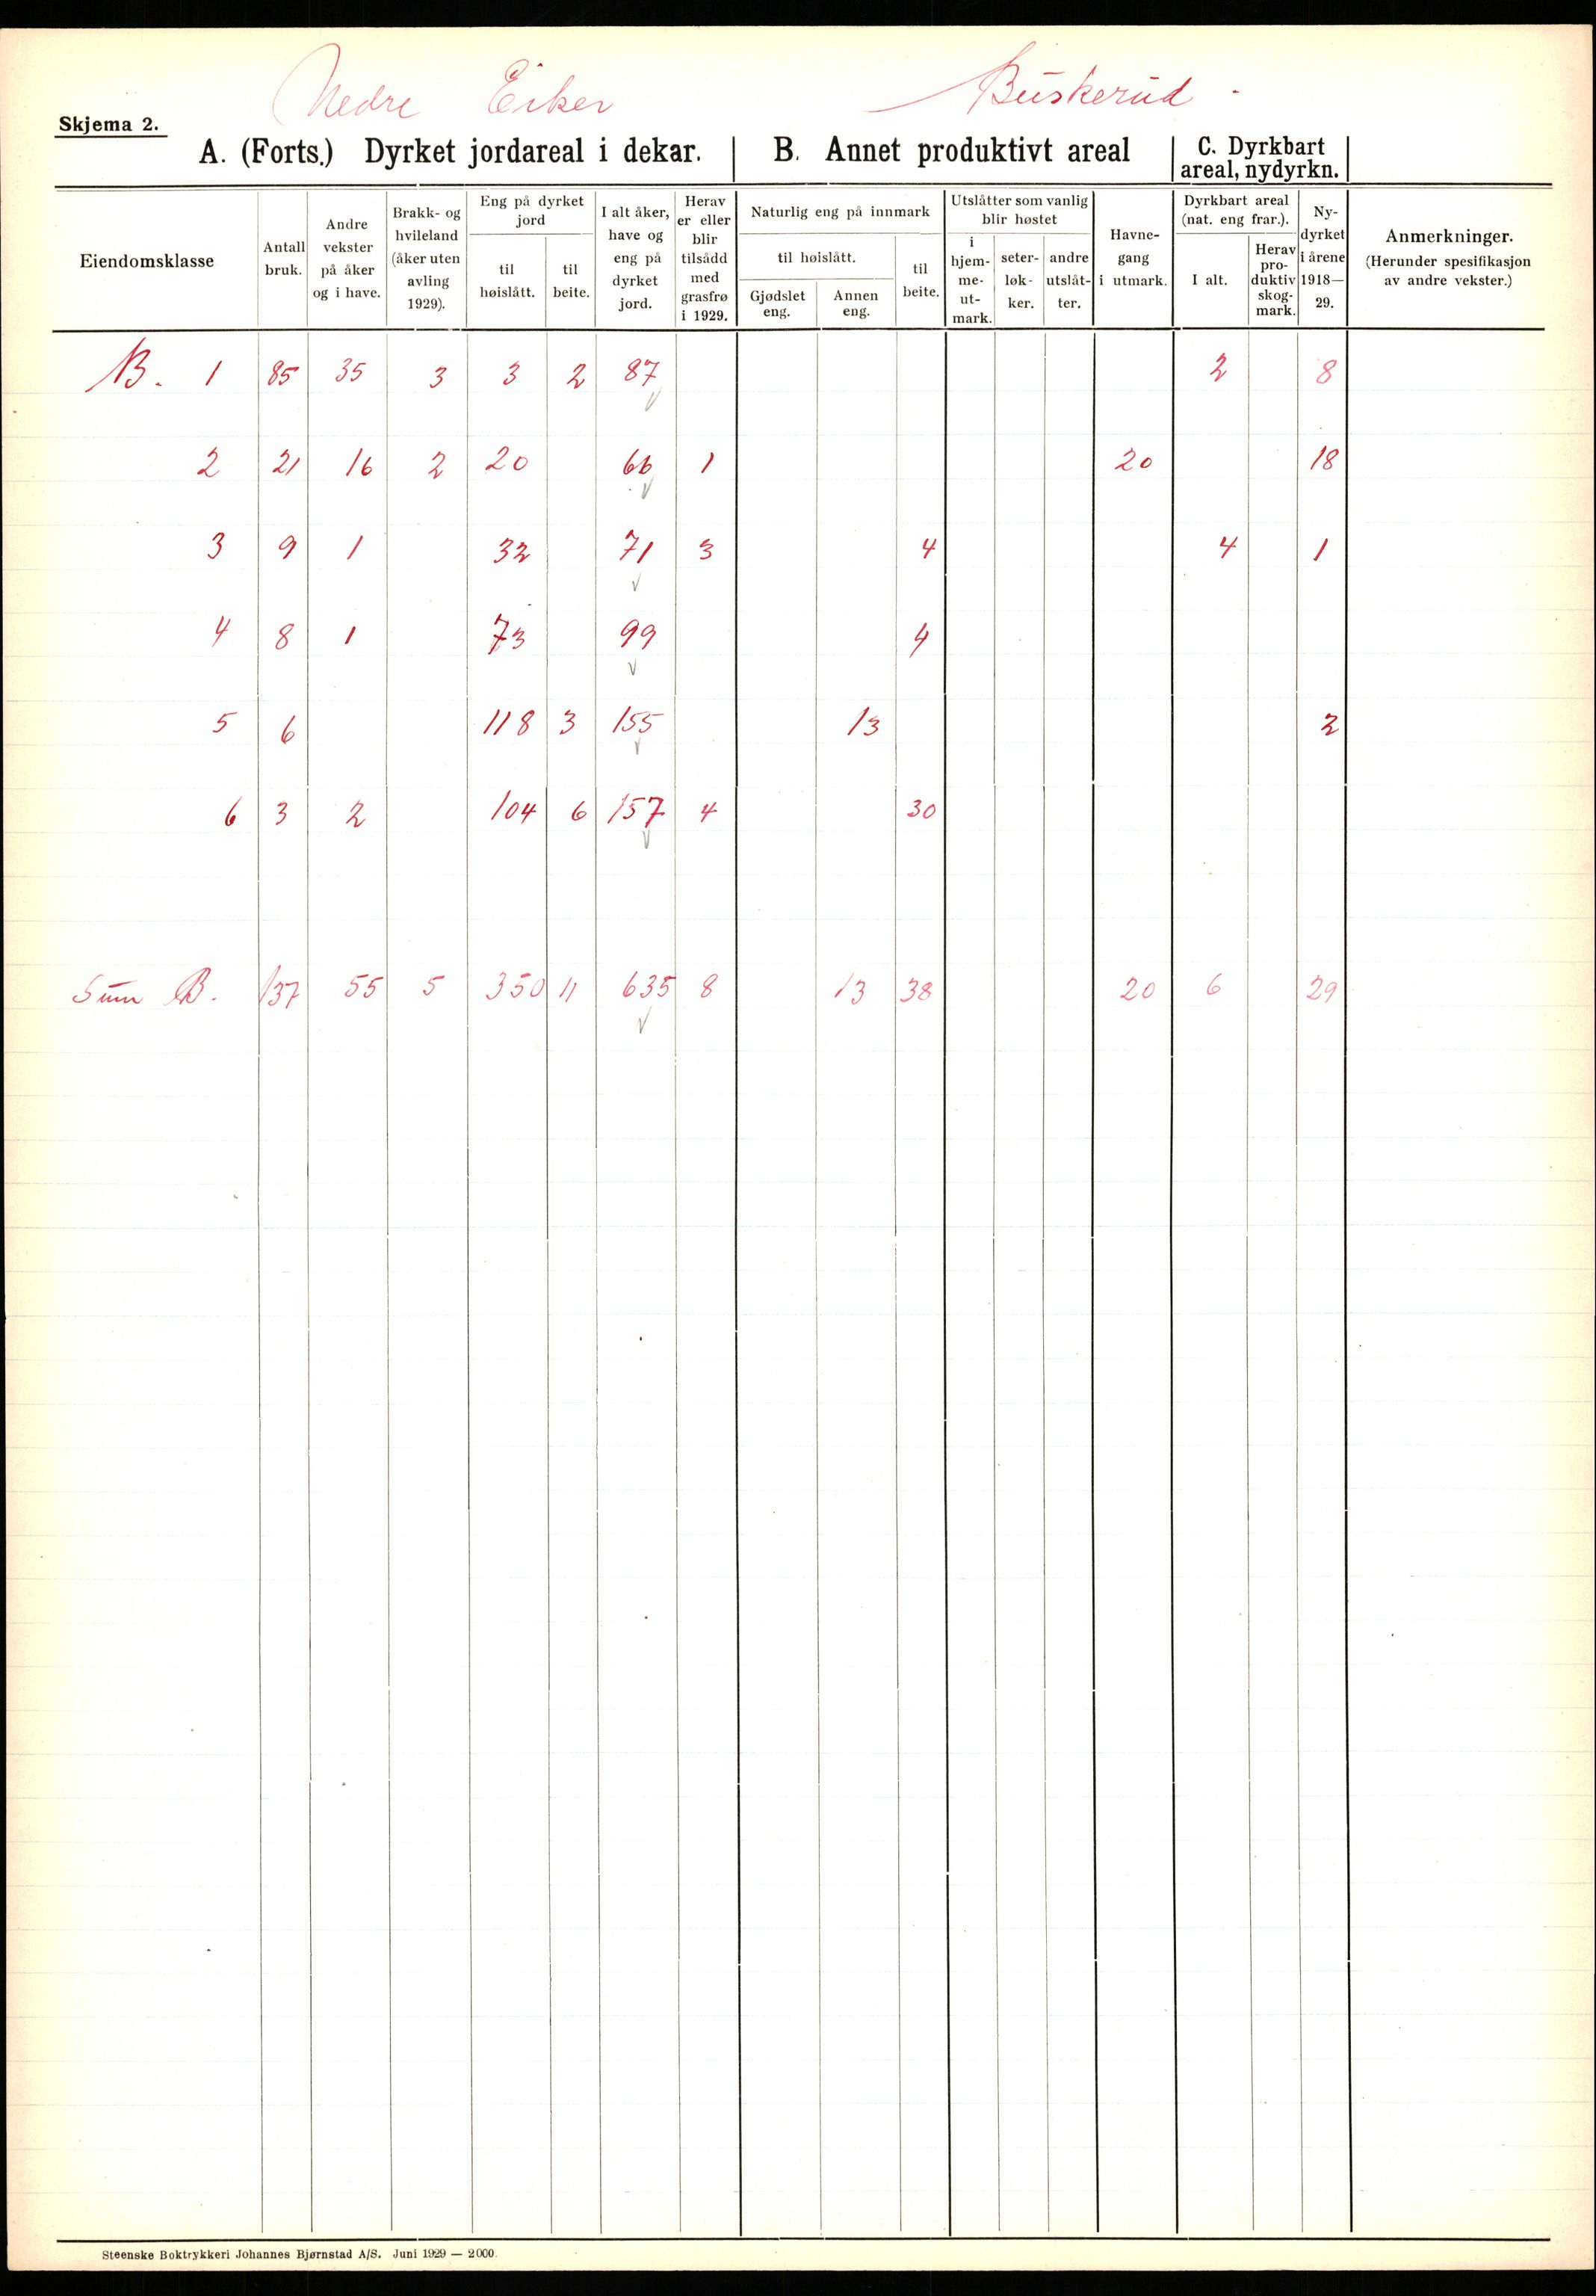 Nedre Eiker Buskerud.
Skjema 2.
A. (Forts.) Dyrket jordareal i dekar. B. Annet produktivt areal C. Dyrkbart areal, nydyrkn.
Eiendomsklasse
Antall bruk.
Andre vekster på åker og i have.
Brakk- og hvileland (åker uten avling 1929).
Eng på dyrket jord
til høislått.
til beite.
I alt åker, have og eng på dyrket jord.
Herav er eller blir tilsådd med grasfrø i 1929.
Naturlig eng på innmark
til høislått.
Gjødslet eng.
Annen eng.
til beite.
Utslåtter som vanlig blir høstet
i hjem-me-ut-mark.
seter-løk-ker.
andre utslåt-ter.
Havne-gang i utmark.
Dyrkbart areal (nat. eng frar.).
I alt.
Herav pro-duktiv skog-mark.
Ny-dyrket i årene 1918—29.
Anmerkninger.
(Herunder spesifikasjon av andre vekster.)
B. 1 85 35 3 3 2 87 2 8
2 21 16 2 20 66 1 20 18
3 9 1 32 71 3 4 4 1
4 8 1 73 99 4
5 6 118 3 155 13 2
6 3 2 104 6 157 4 30
Sum B. 137 55 5 350 11 635 8 13 38 20 6 29
Steenske Boktrykkeri Johannes Bjørnstad A/S. Juni 1929 — 2000.